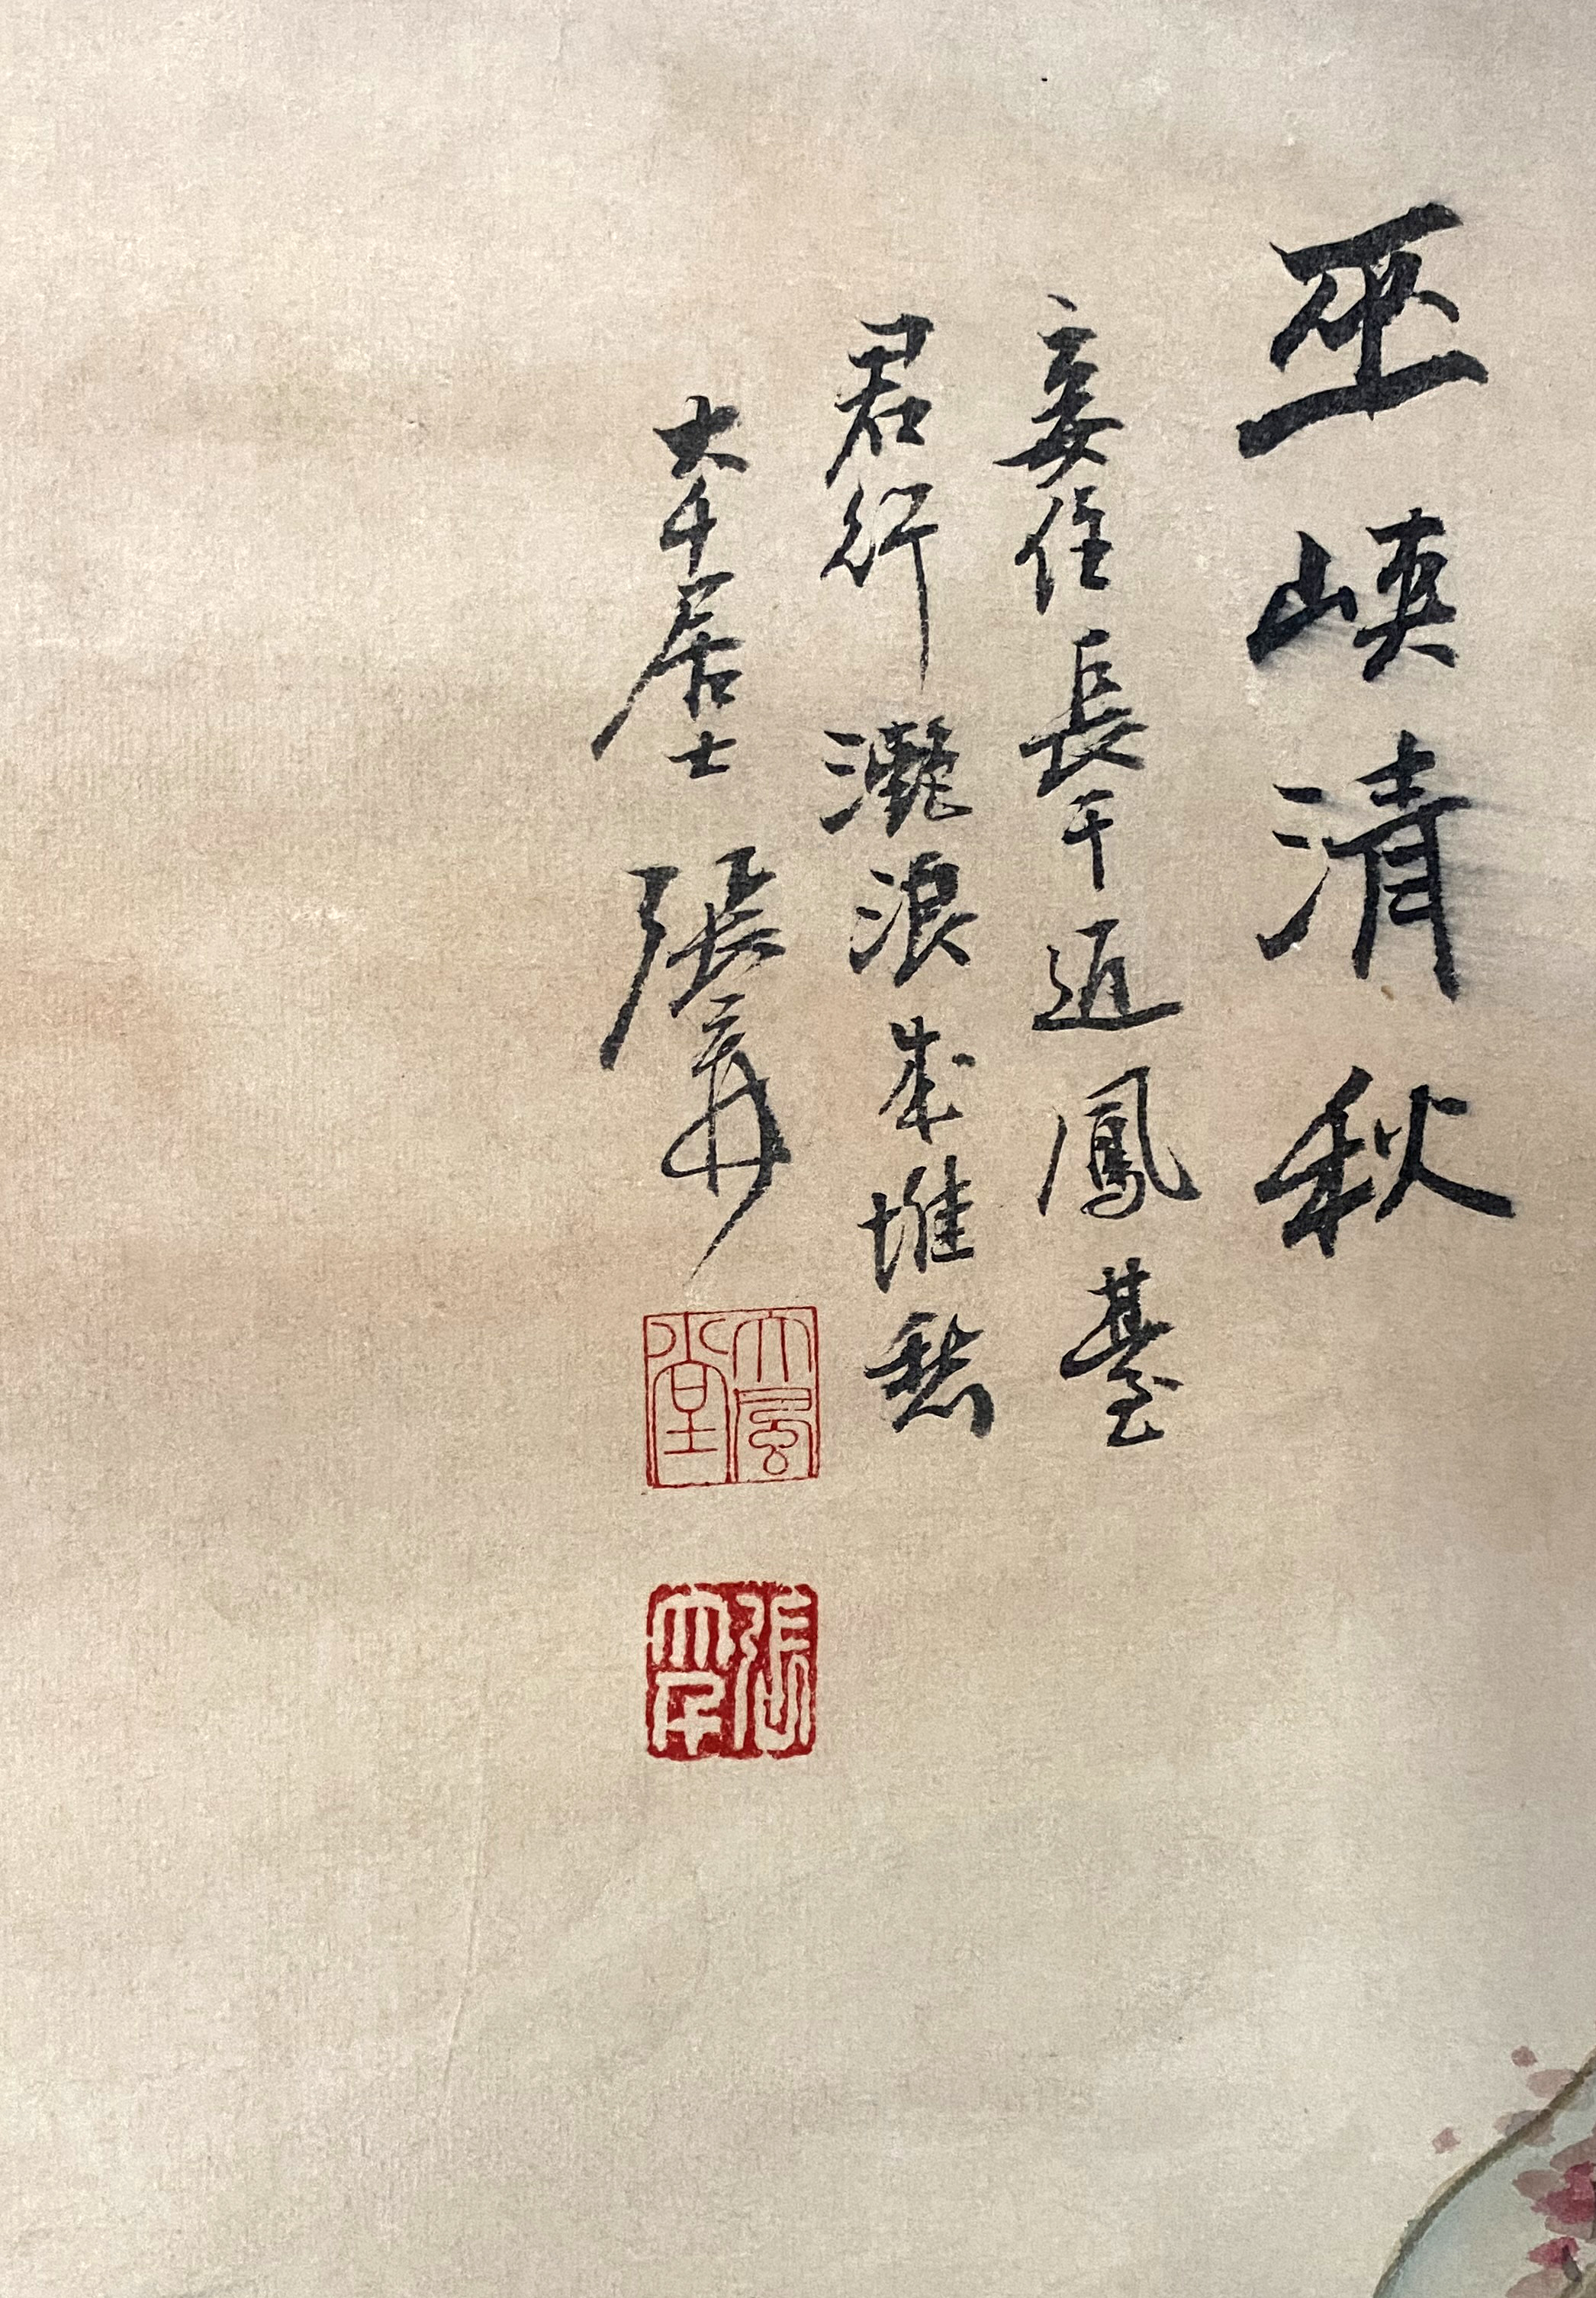 巫峽清秋
妾住長干近鳳臺
君行灩浪成堆愁
大千居士 張爰
大風堂
張大千